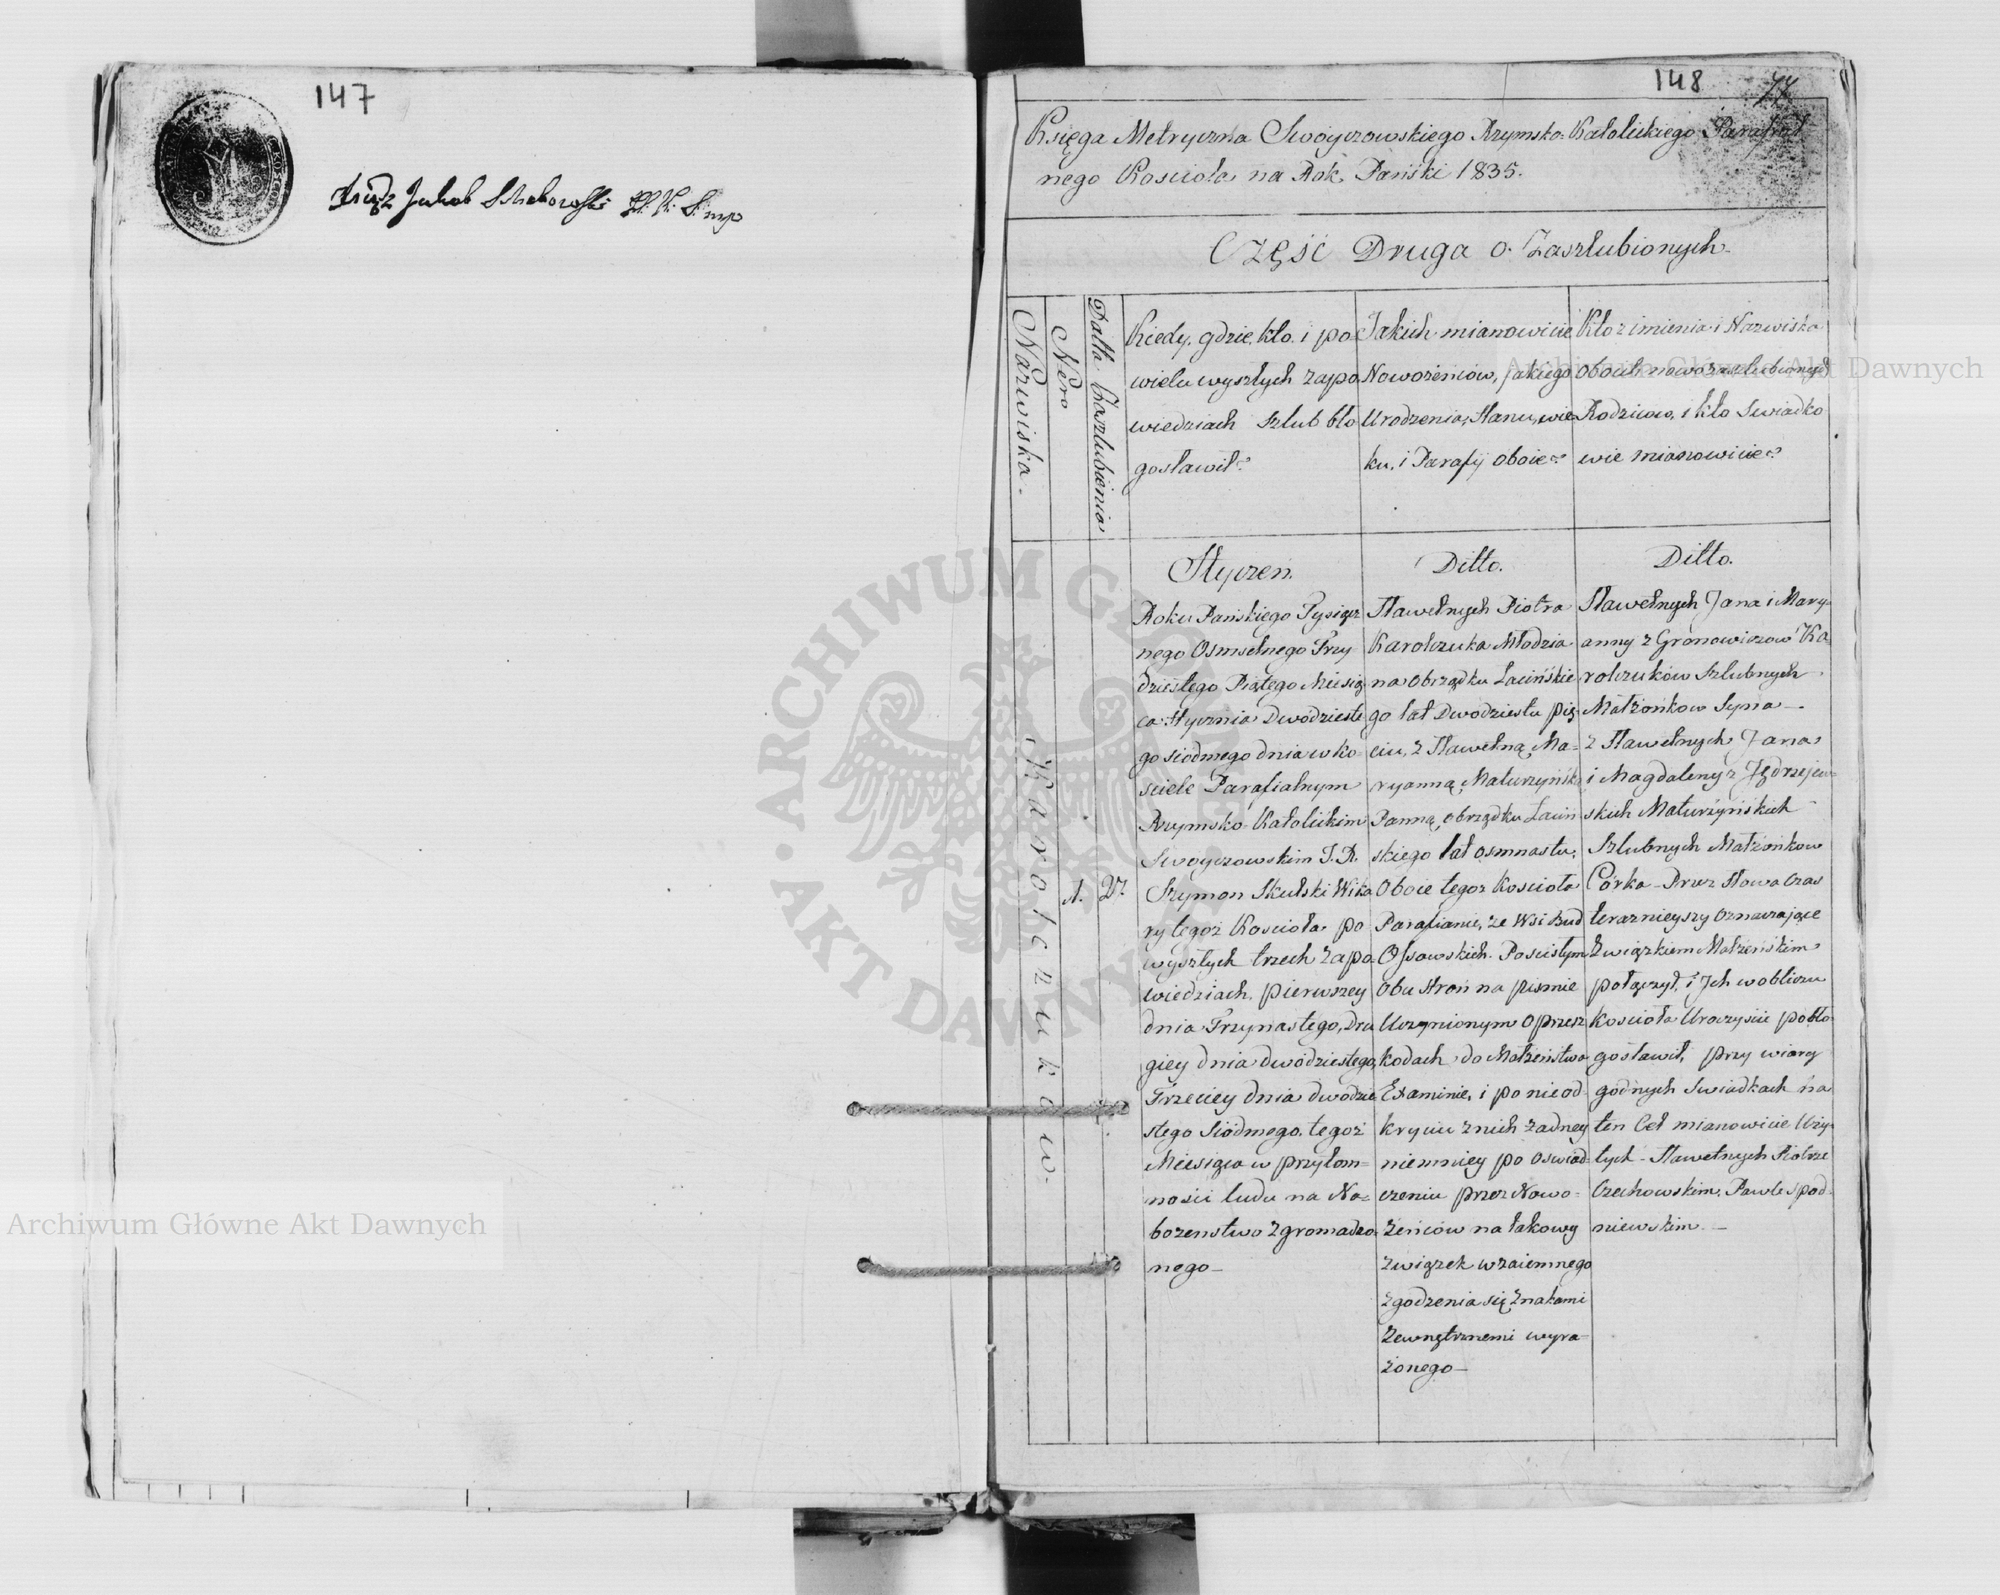 147
148
Ksiądz Jakub
Księga Metryczna Swoyczowskiego Rzymsko-Katolickiego Parafial
nego Kościoła na Rok Pański 1835.
Część Druga o Zaszlubionych.
Nazwiska.
Nero
Datta Zaszlubienia
Kiedy, gdzie, kto i po
wielu wyszłych zapo
wiedziach szlub bło
gosławił?
Jakich mianowicie
Nowożeńców, jakiego
Urodzenia, stanu, wie
ku, i Parafij oboie?
Kto z imienia i Nazwiska
oboch nowozaszlubionych
Rodziców, i kto Swiadko
wie mianowicie?
Karolczukow.
1.
27.
Styczen.
Roku Pańskiego Tysiącz
nego Osmsetnego Trzy
dziestego Piątego Miesią
ca Stycznia Dwódzieste
go siódmego dnia w ko
sciele Parafialnym
Rzymsko-Katolickim
Swoyczowskim J. X.
Szymon Skulski Wika
ry tegoż Kościoła po
wyszłych trzech zapo
wiedziach, pierwszey
dnia Trzynastego, Dru
giey dnia dwódziestego,
Trzeciey dnia dwódzie
stego Siódmego tegoż
Miesiąca w przytom=
nosci ludu na Na=
bozenstwo zgromadzo
nego_
Ditto.
Sławetnych Piotra
Karolczuka Młodzia
na obrządku Łacińskie
go lat Dwodziestu pię
ciu, z Sławetną Ma=
ryanną Maturzyńsk
Panną, obrządku Łaciń
skiego lat osmnastu.
Oboie tegoż Kościoła
Parafianie, ze Wsi Bud
Ossowskich. Poscisłym
obu stron na pismie
Uczynionym o przesz
kodach do Małżeństwa
Examinie, i po nieod
kryciu z nich żadney
niemniey po oswiad
czeniu przez Nowo=
żeńców na takowy
związek wzaiemnego
zgodzenia się znakami
zewnętrznemi wyra=
żonego_
Ditto.
Sławetnych Jana i Mary=
anny z Gronowiczow Ka
rolczuków Szlubnych
Małżonkow Syna_
z Sławetnych Jana
i Magdaleny z Jędrzejew
skich Maturzyńskich
Szlubnych Małżonkow
Córką_ Przez słowa czas
teraznieyszy oznaczające
Związkiem Małżeńskim
połączył, i Ich w obliczu
kościoła Uroczyscie pobło
gosławił, przy wiary
godnych Swiadkach na
ten Cel mianowicie Uży=
tych_ Sławetnych Piotrze
Czechowskim, Pawle spod
niewskim_